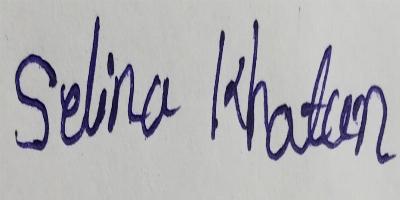 Selina Khatun